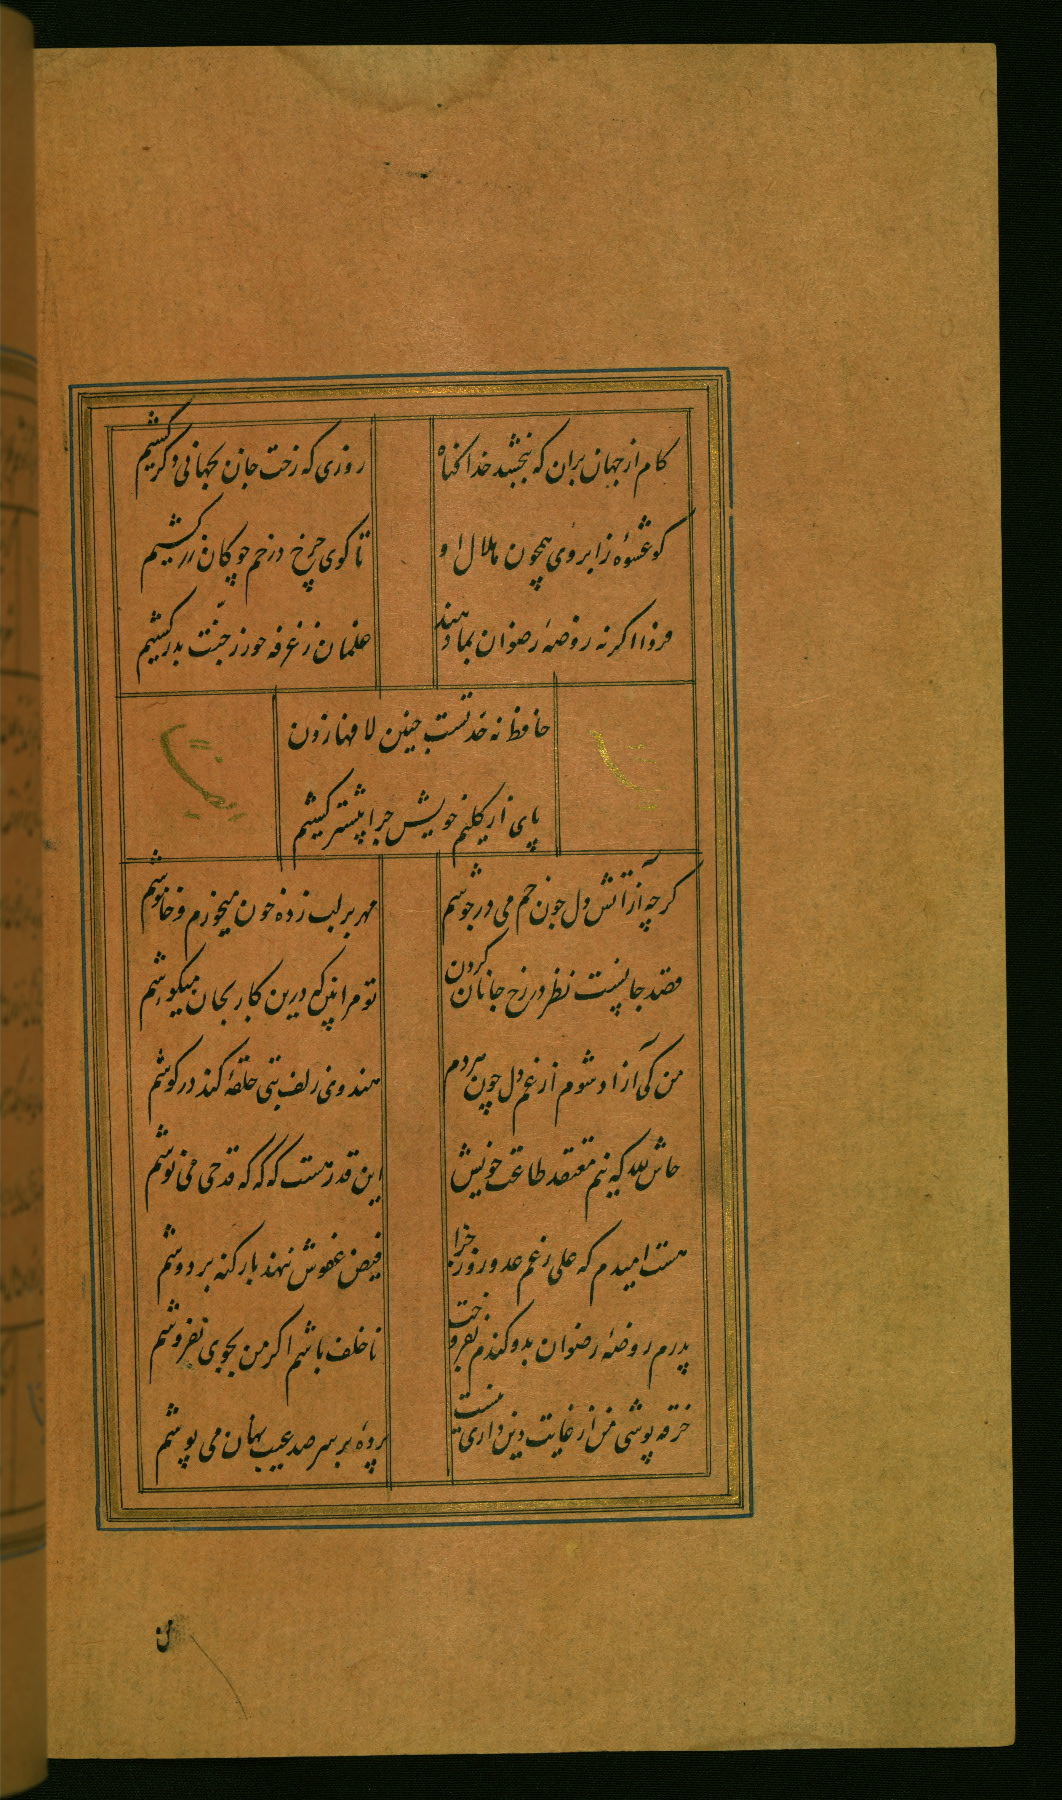 کام از جهان بران که ببخشد خدا گناه
روزی که رخت جان بجهانی دگر کشیم
کو عشوهٔ ز ابروی همچون هلال او
تا کوی چرخ در خم چوکان زر کشیم
فردا اکر نه روضهٔ رضوان بما دهند
غلمان ز غرفه حور ز جنّت بدر کشیم
حافظ نه حد تست چنین لافها زدن
پای از کلیم خویش چرا پیشتر کشیم
کرچه از آتش دل چون خم می در جوشم
مهر بر لب زده خون میخورم و خاموشم
قصد جانیست نظر در رخ جانان کردن
تو مرا بین که درین کار بجان میکوشم
من کی آزاد شوم از غم دل چون هردم
هندوی زلف بتی حلقهٔ کند در کوشم
حاش لله که نیم معتقد طاعت خویش
این قدر هست که که که قدحی می نوشم
هست امیدم که علی رغم عدو روز جزا
فیض عفوش ننهد بار کنه بر دوشم
پدرم روضهٔ رضوان بدو کندم بفروخت
ناخلف باشم اکر من بجوی نفروشم
خرقه پوشی من از غایت دین داری نیست
پردهٔ بر سر صد عیب نهان می پوشم
من